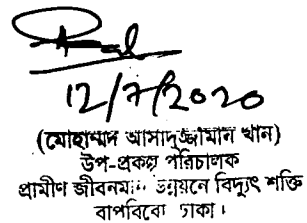 12/7/2020
(মোহাম্মদ আসাদুজ্জামান খান)
উপ-প্রকল্প পরিচালক
গ্রামীণ জীবনমা উন্নয়নে বিদ্যুৎ শক্তি
বাপবিবো ঢাকা।